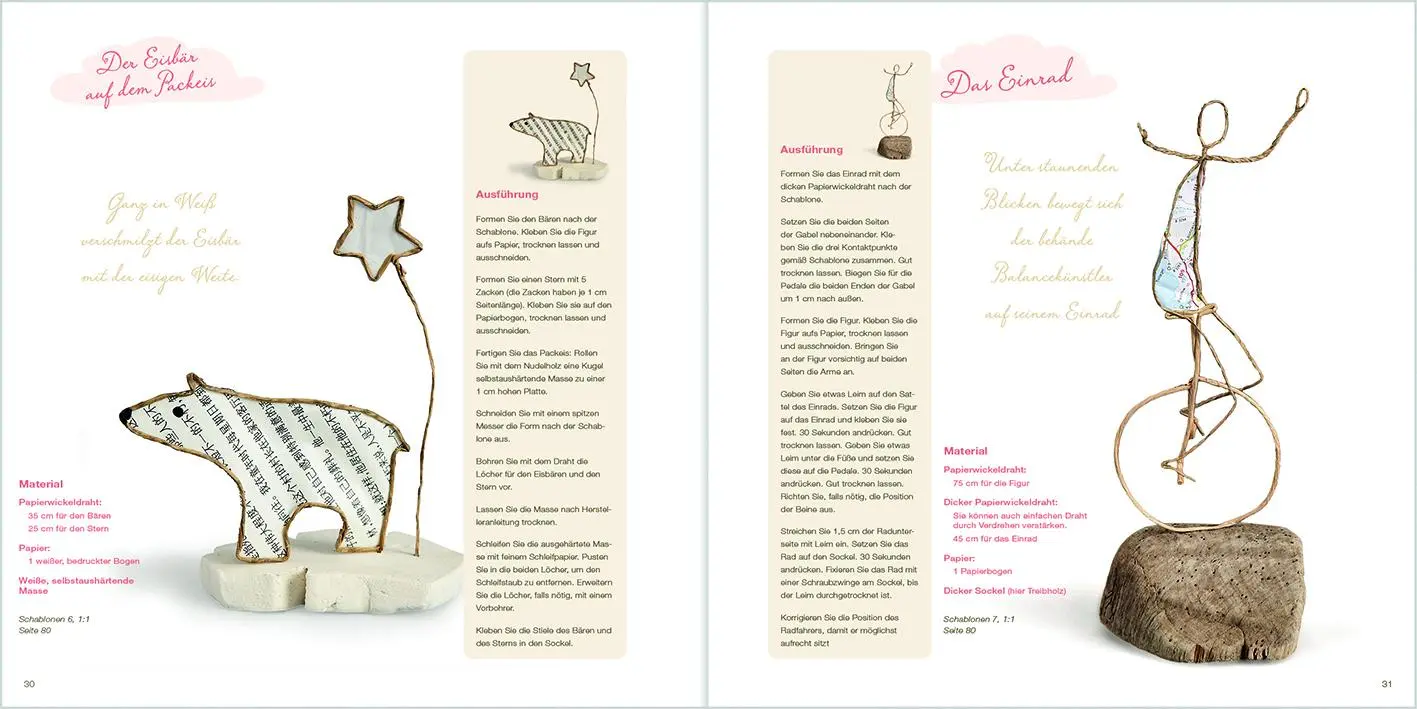 Der Eisbär
auf dem Packeis
Ganz in Weiß
verschmilzt der Eisbär
mit der eisigen Weite.
Material
Papierwickeldraht:
35 cm für den Bären
25 cm für den Stern
Papier:
1 weißer, bedruckter Bogen
Weiße, selbstaushärtende
Masse
Schablonen 6, 1:1
Seite 80
Ausführung
Formen Sie den Bären nach der
Schablone. Kleben Sie die Figur
aufs Papier, trocknen lassen und
ausschneiden.
Formen Sie einen Stern mit 5
Zacken (die Zacken haben je 1 cm
Seitenlänge). Kleben Sie sie auf den
Papierbogen, trocknen lassen und
ausschneiden.
Fertigen Sie das Packeis: Rollen
Sie mit dem Nudelholz eine Kugel
selbstaushärtende Masse zu einer
1 cm hohen Platte.
Schneiden Sie mit einem spitzen
Messer die Form nach der Schab-
lone aus.
Bohren Sie mit dem Draht die
Löcher für den Eisbären und den
Stern vor.
Lassen Sie die Masse nach Herstel-
leranleitung trocknen.
Schleifen Sie die ausgehärtete Mas-
se mit feinem Schleifpapier. Pusten
Sie in die beiden Löcher, um den
Schleifstaub zu entfernen. Erweitern
Sie die Löcher, falls nötig, mit einem
Vorbohrer.
Kleben Sie die Stiele des Bären und
des Sterns in den Sockel.
30
Ausführung
Formen Sie das Einrad mit dem
dicken Papierwickeldraht nach der
Schablone.
Setzen Sie die beiden Seiten
der Gabel nebeneinander. Kle-
ben Sie die drei Kontaktpunkte
gemäß Schablone zusammen. Gut
trocknen lassen. Biegen Sie für die
Pedale die beiden Enden der Gabel
um 1 cm nach außen.
Formen Sie die Figur. Kleben Sie die
Figur aufs Papier, trocknen lassen
und ausschneiden. Bringen Sie
an der Figur vorsichtig auf beiden
Seiten die Arme an.
Geben Sie etwas Leim auf den Sat-
tel des Einrads. Setzen Sie die Figur
auf das Einrad und kleben Sie sie
fest. 30 Sekunden andrücken. Gut
trocknen lassen. Geben Sie etwas
Leim unter die Füße und setzen Sie
diese auf die Pedale. 30 Sekunden
andrücken. Gut trocknen lassen.
Richten Sie, falls nötig, die Position
der Beine aus.
Streichen Sie 1,5 cm der Radunter-
seite mit Leim ein. Setzen Sie das
Rad auf den Sockel. 30 Sekunden
andrücken. Fixieren Sie das Rad mit
einer Schraubzwinge am Sockel, bis
der Leim durchgetrocknet ist.
Korrigieren Sie die Position des
Radfahrers, damit er möglichst
aufrecht sitzt
Das Einrad
Unter staunenden
Blicken bewegt sich
der behände
Balancekünstler
auf seinem Einrad
Material
Papierwickeldraht:
75 cm für die Figur
Dicker Papierwickeldraht:
Sie können auch einfachen Draht
durch Verdrehen verstärken.
45 cm für das Einrad
Papier:
1 Papierbogen
Dicker Sockel (hier Treibholz)
Schablonen 7, 1:1
Seite 80
31